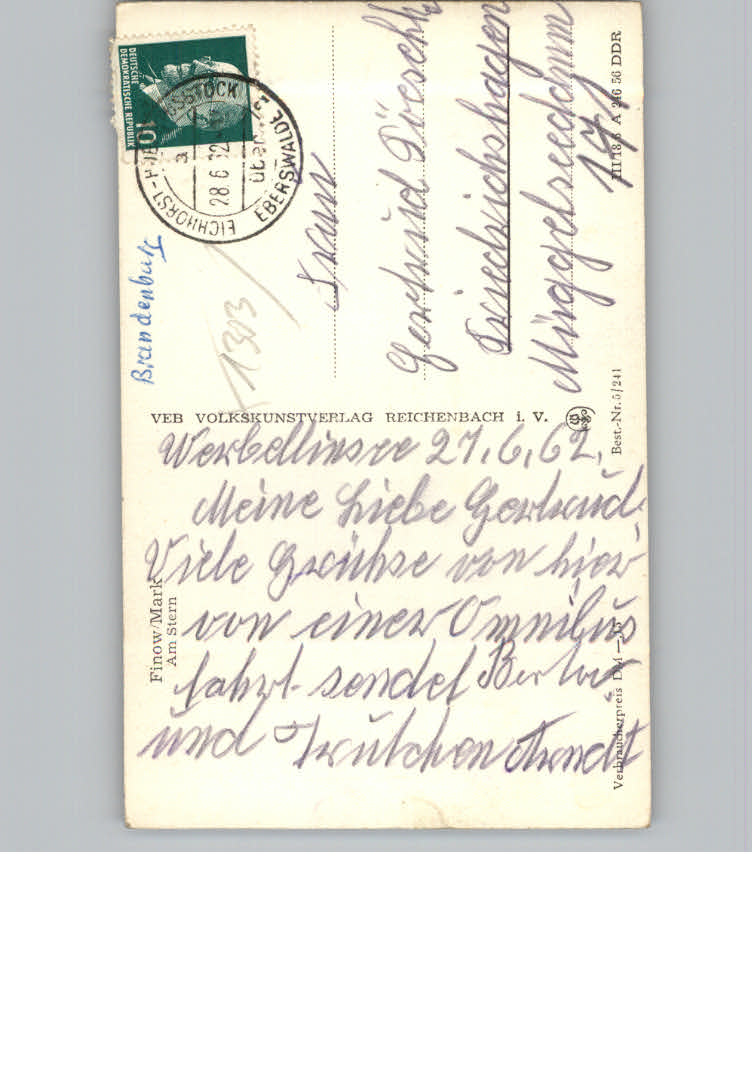 Werbellinsee 27.6.62.
Meine Liebe Gertrud.
Viele Grühse von hier
von einer Omnibus
fahrt sendet
und Trutchen Arndt
Frau
Gertrud
Friedrichshagen
Müggelseedamm
171
VEB VOLKSKUNSTVERLAG REICHENBACH i. V.
Finow/Mark
Am Stern
Best.-Nr. 5/241
Verbraucherpreis DM
III/18/6 A 246 56 DDR
Brandenburg
1303
DEUTSCHE
DEMOKRATISCHE REPUBLIK
10
EICHHORST
28.6.62
über
EBERSWALDE